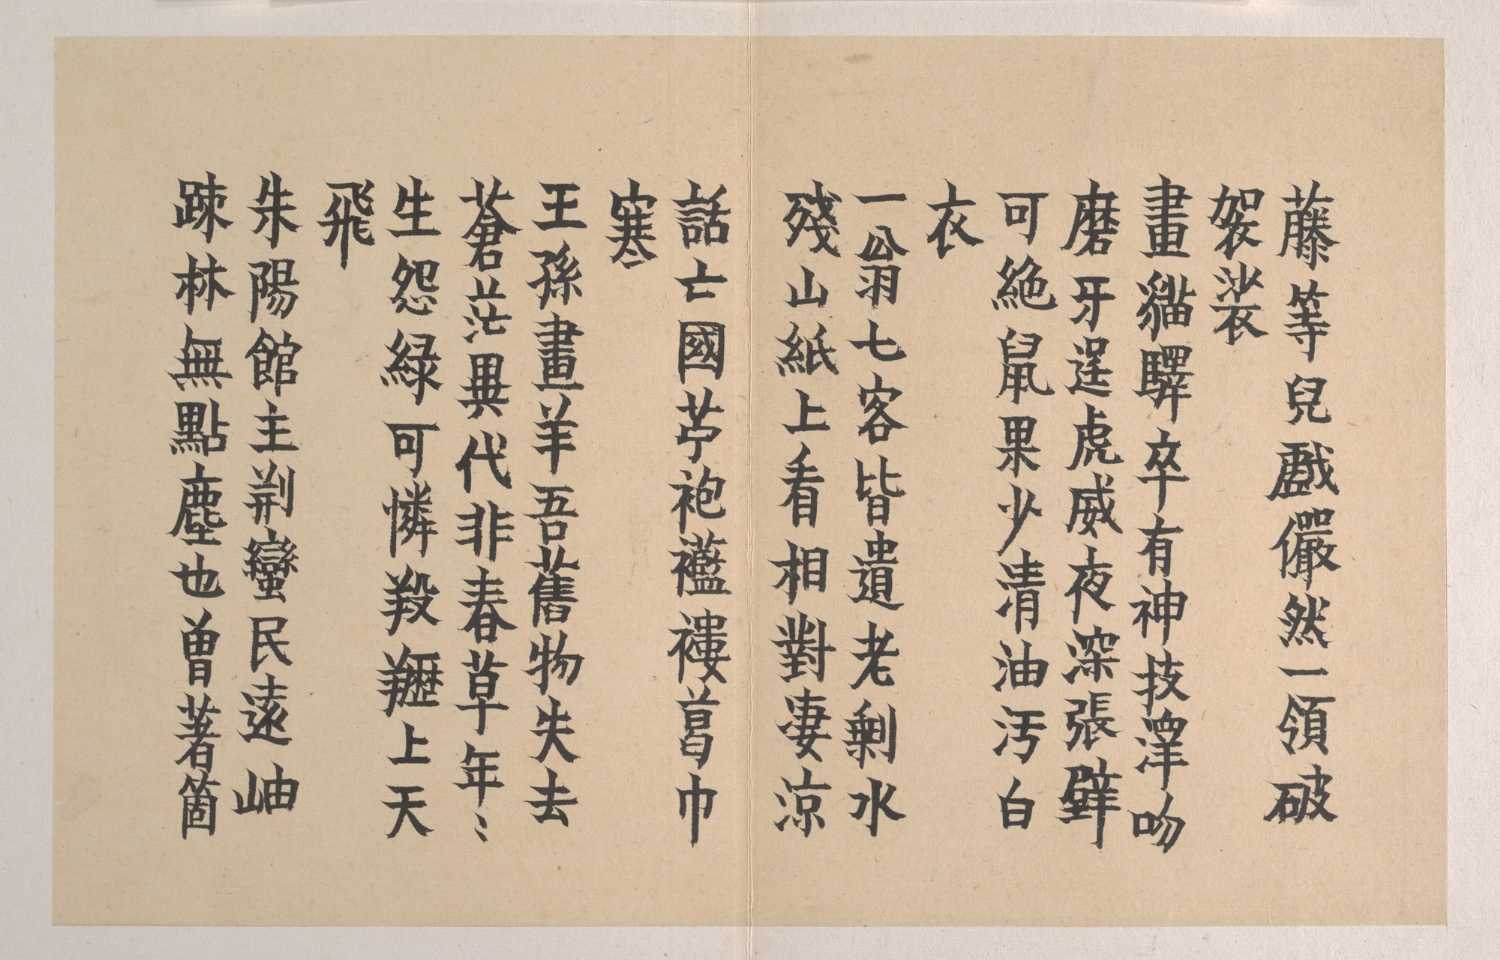 藤等兒戲儼然一領破
袈裟
畫貓驛卒有神技渾吻
磨牙逞虎威夜深張擘
可絕鼠果少清油汚白
衣
一翁七客皆遺老剩水
殘山紙上看相對淒涼
話亡國苧袍襤褸葛巾
寒
王孫畫羊吾舊物失去
蒼茫異代非春草年〻
生怨綠可憐羖䍽上天
飛
朱陽館主荊蠻民遠岫
疎林無點塵也曾著箇